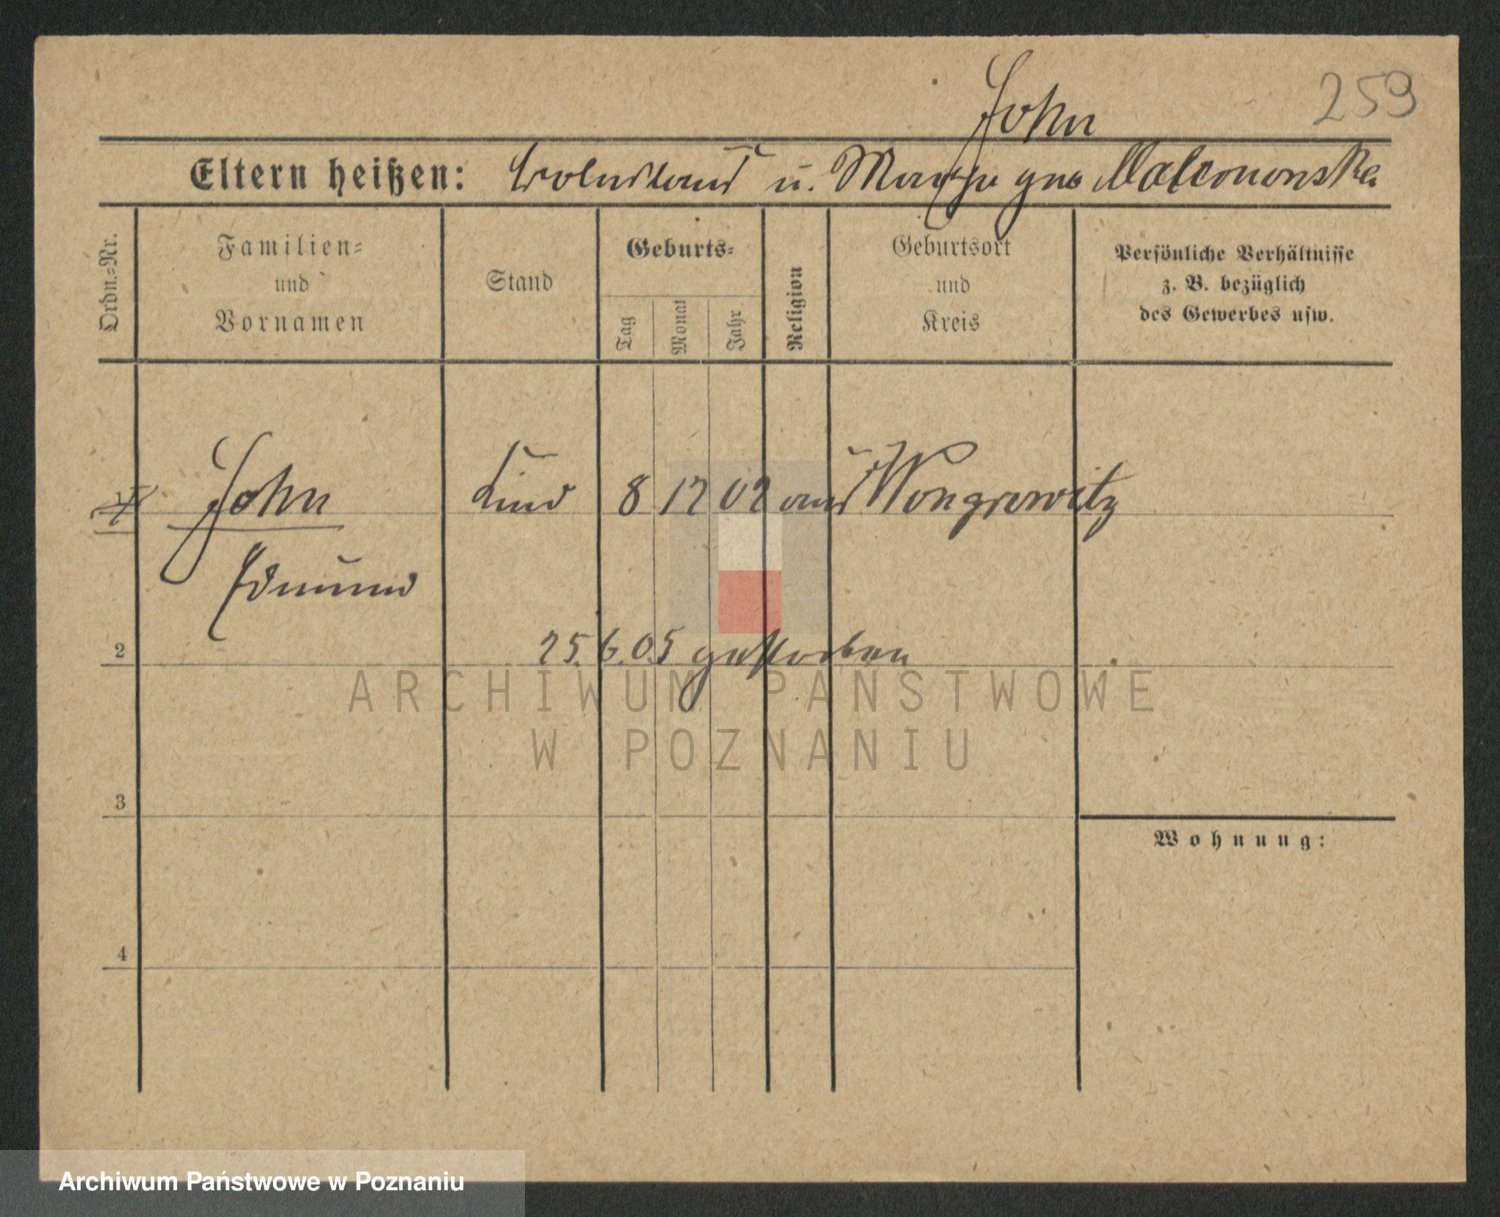 259
John
Eltern heißen: u. geb
Ordn.=Nr.
Familien=
und
Vornamen
Stand
Geburts=
Tag
Monat
Jahr
Religion
Geburtsort
und
Kreis
Persönliche Verhältnisse
z. B. bezüglich
des Gewerbes usw.
John Kind 8 12 02 aus Wongrowitz
Edmund
2
25.6.05 gestorben
ARCHIWUM PAŃSTWOWE
W POZNANIU
3
Wohnung:
4
Archiwum Państwowe w Poznaniu